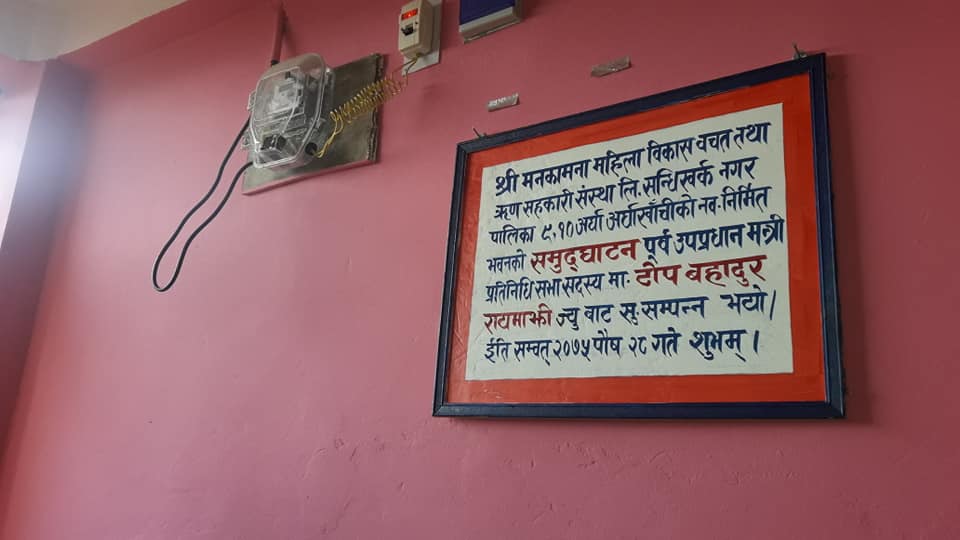 श्री मनकामना महिला विकास वचत तथा
ऋण सहकारी संस्था लि. सन्धिखर्क नगर
पालिका ९,१० अर्घा अर्घाखाँचीको नव. निर्मित
भवनको समुद्घाटन पूर्व उपप्रधान मन्त्री
प्रतिनिधि सभा सदस्य मा. टोप बहादुर
रायमाझी ज्यु बाट सु.सम्पन्न भयो।
ईति सम्वत् २०७५ पौष २८ गते शुभम्।